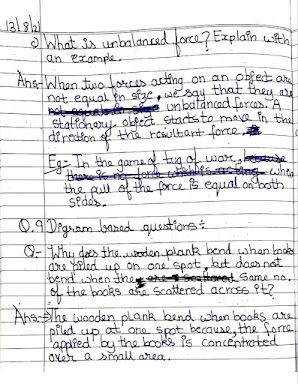 13/8/21
Q What is unbalanced force? Explain with
an example.
Ans- When two forces acting on an object are
not equal in size, we say that they are
unbalanced forces. A
stationary object starts to move in the
direction of the resultant force.
Eg:- In the game of tug of war,
when
the pull of the force is equal on both
sides.
Q.9 Digram based questions:-
Q:- Why does the wooden plank bend when books
are piled up on one spot, but does not
bend when the same no.
of the books are scattered across it?
Ans:- The wooden plank bend when books are
piled up at one spot because, the force
applied by the books is concentrated
over a small area.